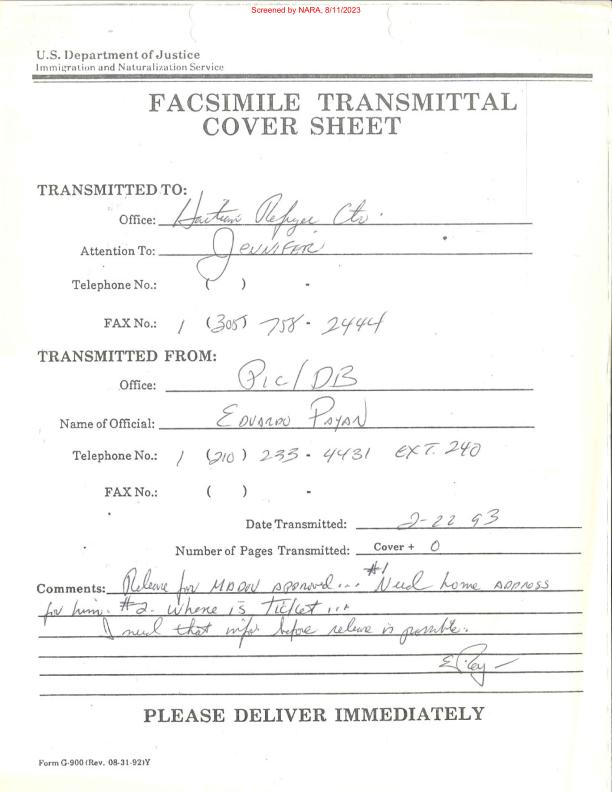 Screened by NARA, 8/11/2023
U.S. Department of Justice
Immigration and Naturalization Service
FACSIMILE TRANSMITTAL
COVER SHEET
TRANSMITTED TO:
Office: Haitian Refugee Ctr.
Attention To: JENNIFER
Telephone No.: ( ) -
FAX No.: 1 (305) 758-2444
TRANSMITTED FROM:
Office: PIC/DB
Name of Official: EDUARDO PAYAN
Telephone No.: 1 (210) 233-4431 EXT. 240
FAX No.: ( ) -
Date Transmitted: 2-22 93
Number of Pages Transmitted: Cover + 0
Comments: Release for approved... #1 Need home ADDRESS
for him. #2. Where is Ticket...
I need that info before release is possible.
PLEASE DELIVER IMMEDIATELY
Form G-900 (Rev. 08-31-92)Y